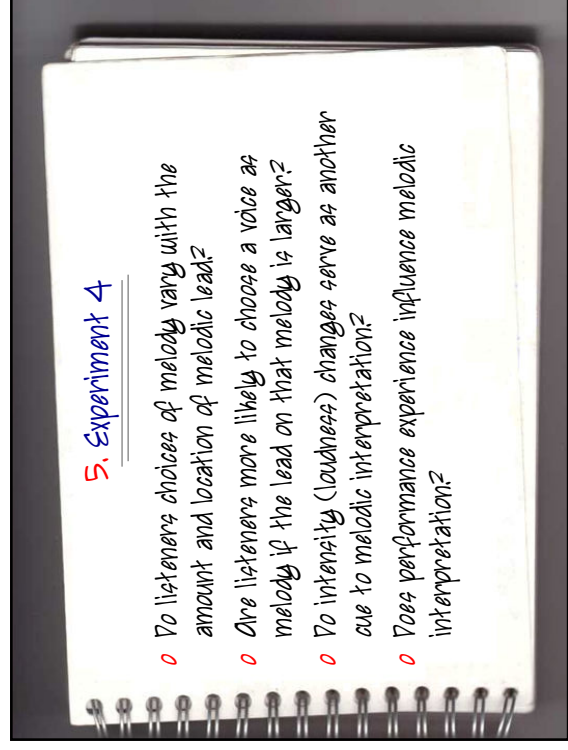 5. Experiment 4
o Do listeners choices of melody vary with the
amount and location of melodic lead?
o Are listeners more likely to choose a voice as
melody if the lead on that melody is larger?
o Do intensity (loudness) changes serve as another
cue to melodic interpretation?
o Does performance experience influence melodic
interpretation?